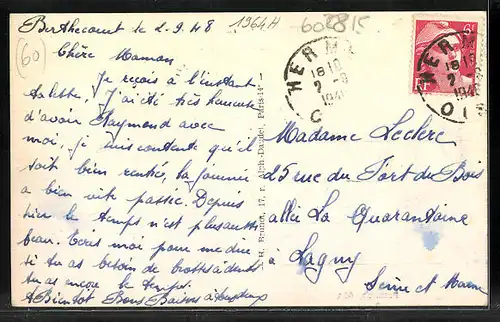 Berthecourt le 2-9-48
1964H
602815
(60)
Chère Maman
Je reçois à l'instant
ta lettre. J'ai été très heureuse
d'avoir Raymond avec
moi, je suis contente qu'il
soit bien rentré, la journée
a bien vite passée. Depuis
hier le temps n'est plus aussi
beau. Ecris moi pour me dire
si tu as besoin de brosses à dents
tu as encore le temps.
A Bientôt Bons Baisers à tous deux
17, r. Paris-14e
Madame Leclère
25 rue du Fort du Bois
allée La Quarantaine
à Lagny
Seine et Marne
HERM
18 10
2 -9
HERM
18 10
1948
OI